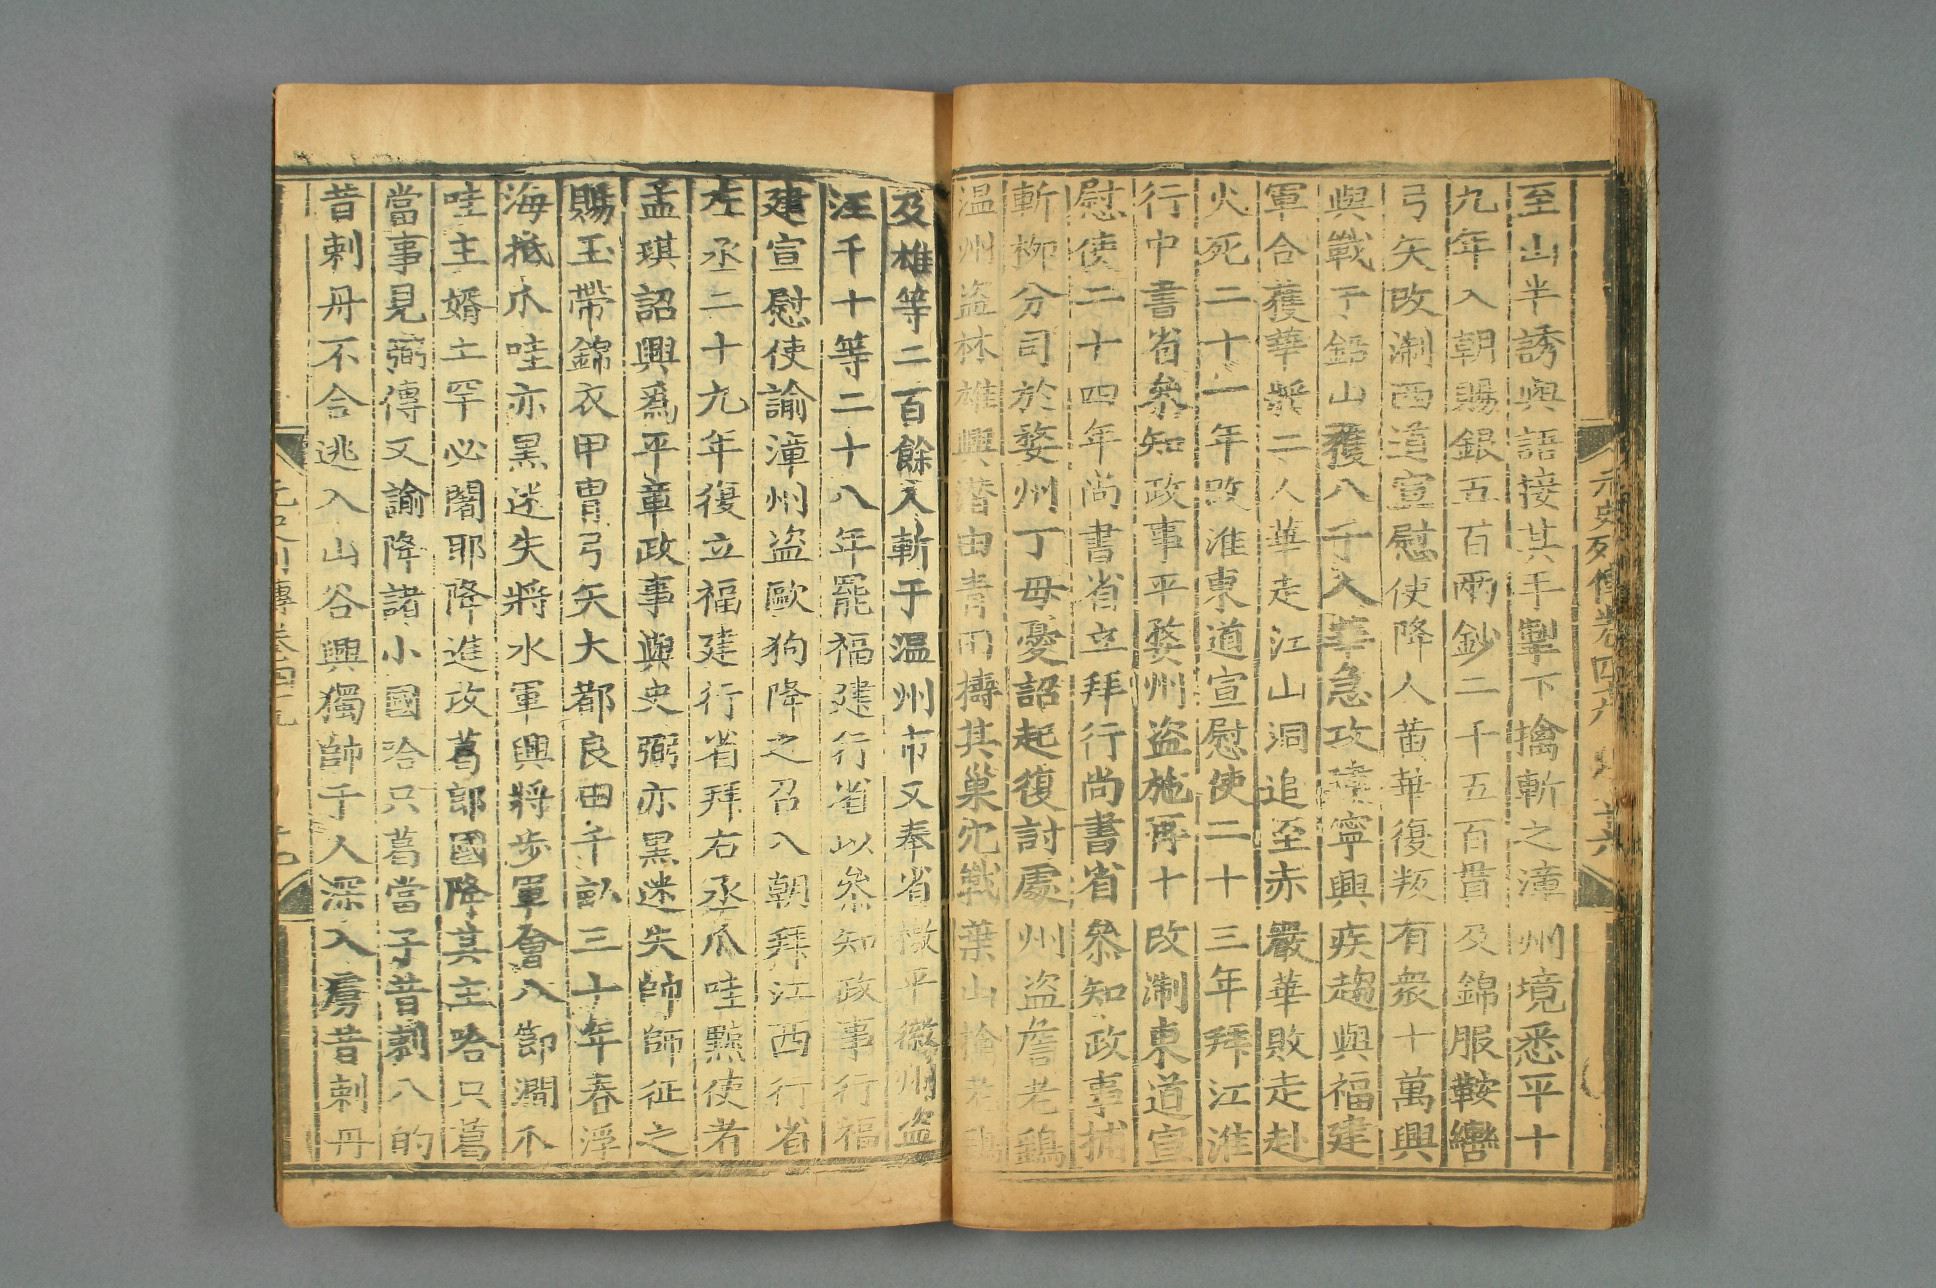 元史列傳卷四六
至山半誘與語接其手掣下擒斬之漳州境悉平十
九年入朝賜銀五百兩鈔二千五百貫及錦服鞍轡
弓矢改淛西道宣慰使降人黃華復叛有衆十萬興
與戰于鉛山獲八千人華急攻建寧興疾趨與福建
軍合獲華將二人華走江山洞追至赤巖華敗走赴
火死二十一年改淮東道宣慰使二十三年拜江淮
行中書省叅知政事平婺州盗施再十改淛東道宣
慰使二十四年尚書省立拜行尚書省叅知政事捕
斬柳分司於婺州丁母憂詔起復討處州盗詹老鷂
温州盗林雄興潛由青田擣其巢穴戰葉山擒老鷂
及雄等二百餘人斬于温州市又奉省檄平徽州盗
汪千十等二十八年罷福建行省以叅知政事行福
建宣慰使諭漳州盗歐狗降之召入朝拜江西行省
左丞二十九年復立福建行省拜右丞爪哇黥使者
孟琪詔興爲平章政事與史弼亦黑迷失帥師征之
賜玉帶錦衣甲胄弓矢大都良田千畒三十年春浮
海抵爪哇亦黑迷失將水軍興將步軍會八節澗爪
哇主婿土罕必闍耶降進攻葛郎國降其主哈只葛
當事見弼傳又諭降諸小國哈只葛當子昔剌八的
昔剌丹不合逃入山谷興獨帥千人深入虜昔剌丹